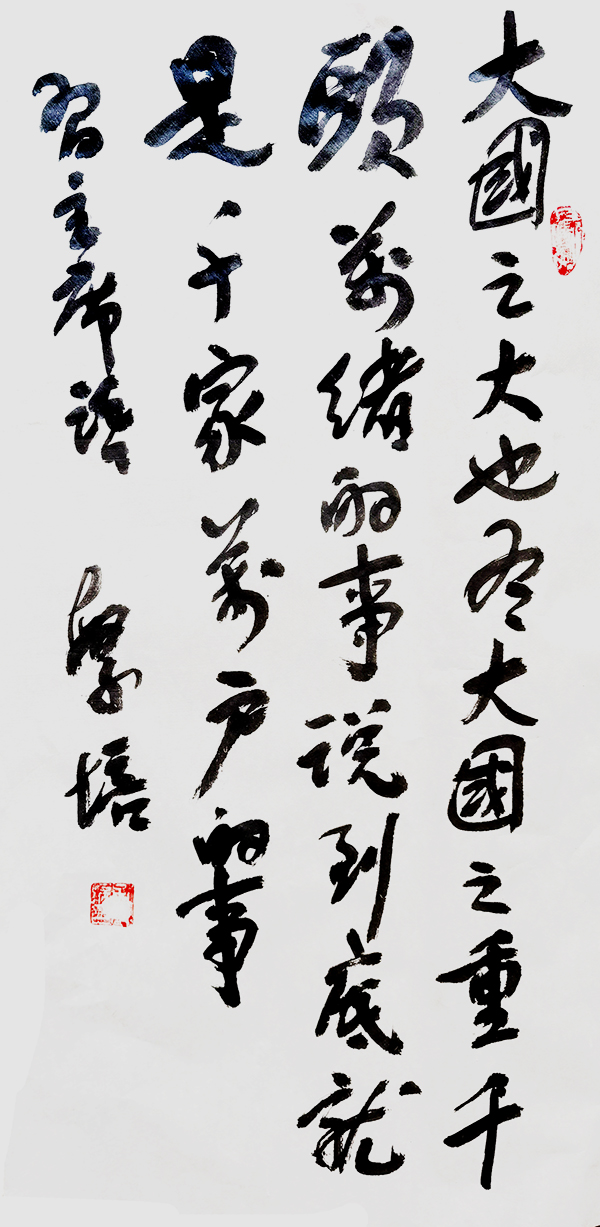 大國之大也有大國之重千
頭萬緒的事说到底就
是千家萬户的事
習主席語 培